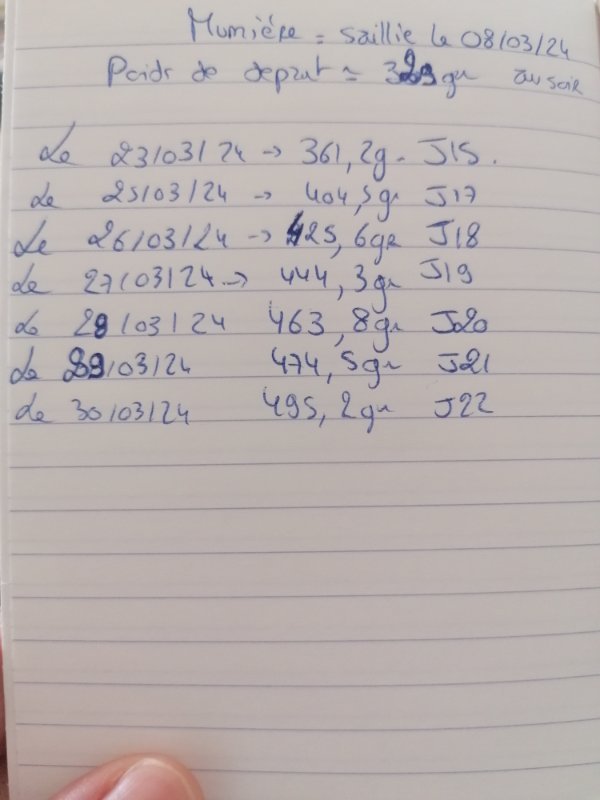 Mumière = saillie le 08/03/24
Poids de depart = 329gr au soir
Le 23/03/24 -> 361,2g. J15.
Le 25/03/24 -> 404,5gr J17
Le 26/03/24 -> 425,6gr J18
Le 27/03/24 -> 444,3gr J19
Le 28/03/24 463,8gr J20
Le 29/03/24 474,5gr J21
Le 30/03/24 495,2gr J22